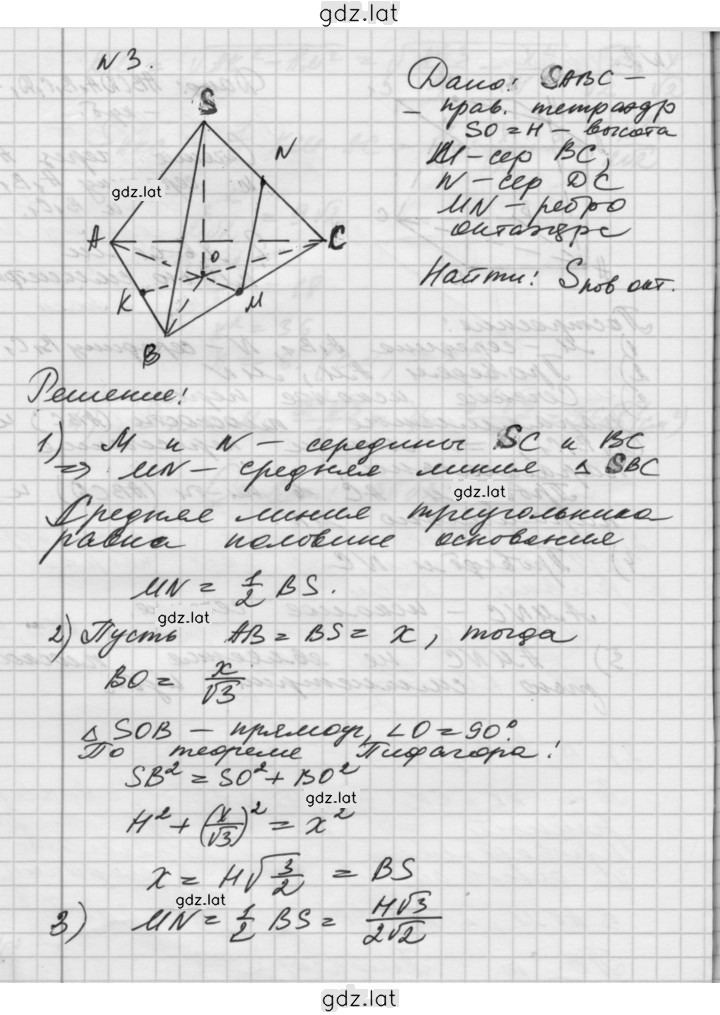 gdz.lat
N 3.
Дано: SABC –
– прав. тетраэдр
SO = H – высота
M – сер BC,
N – сер DC
MN – ребро
октаэдра
Найти: Sпов окт.
S
N
gdz.lat
A
O
C
K
M
B
Решение:
1) M и N – середины SC и BC
⇒ MN – средняя линия △ SBC
gdz.lat
Средняя линия треугольника
равна половине основания
MN = 1/2 BS.
gdz.lat
2) Пусть AB = BS = x, тогда
BO = x/√3
△ SOB – прямоуг, ∠O = 90°.
По теореме Пифагора:
SB² = SO² + BO²
gdz.lat
H² + (x/√3)² = x²
x = H√(3/2) = BS
gdz.lat
3) MN = 1/2 BS = H√3/2√2
gdz.lat